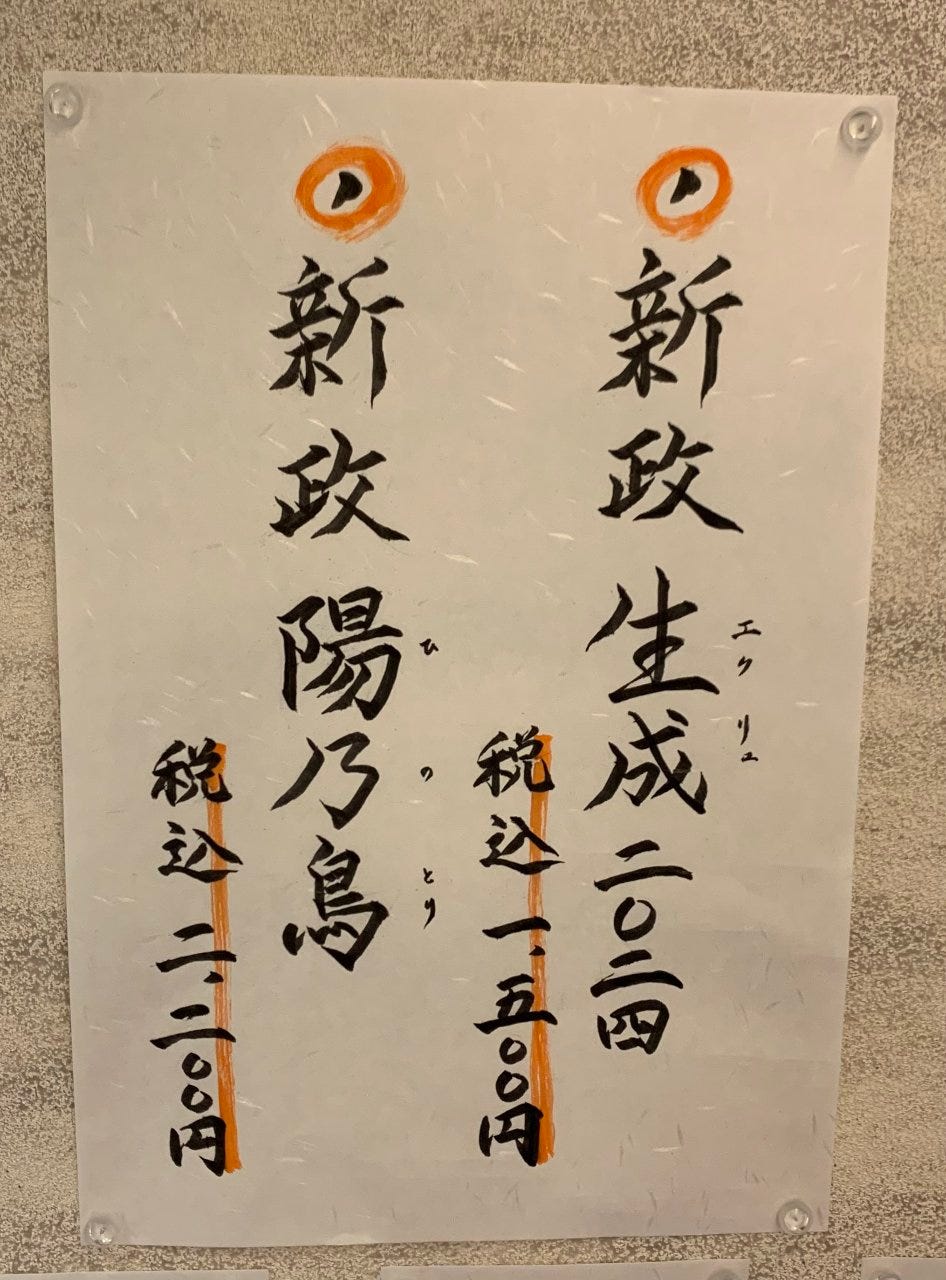 新政 生成 二〇二四
エクリュ
税込 一、五〇〇円
新政 陽乃鳥
ひ の とり
税込 二、二〇〇円